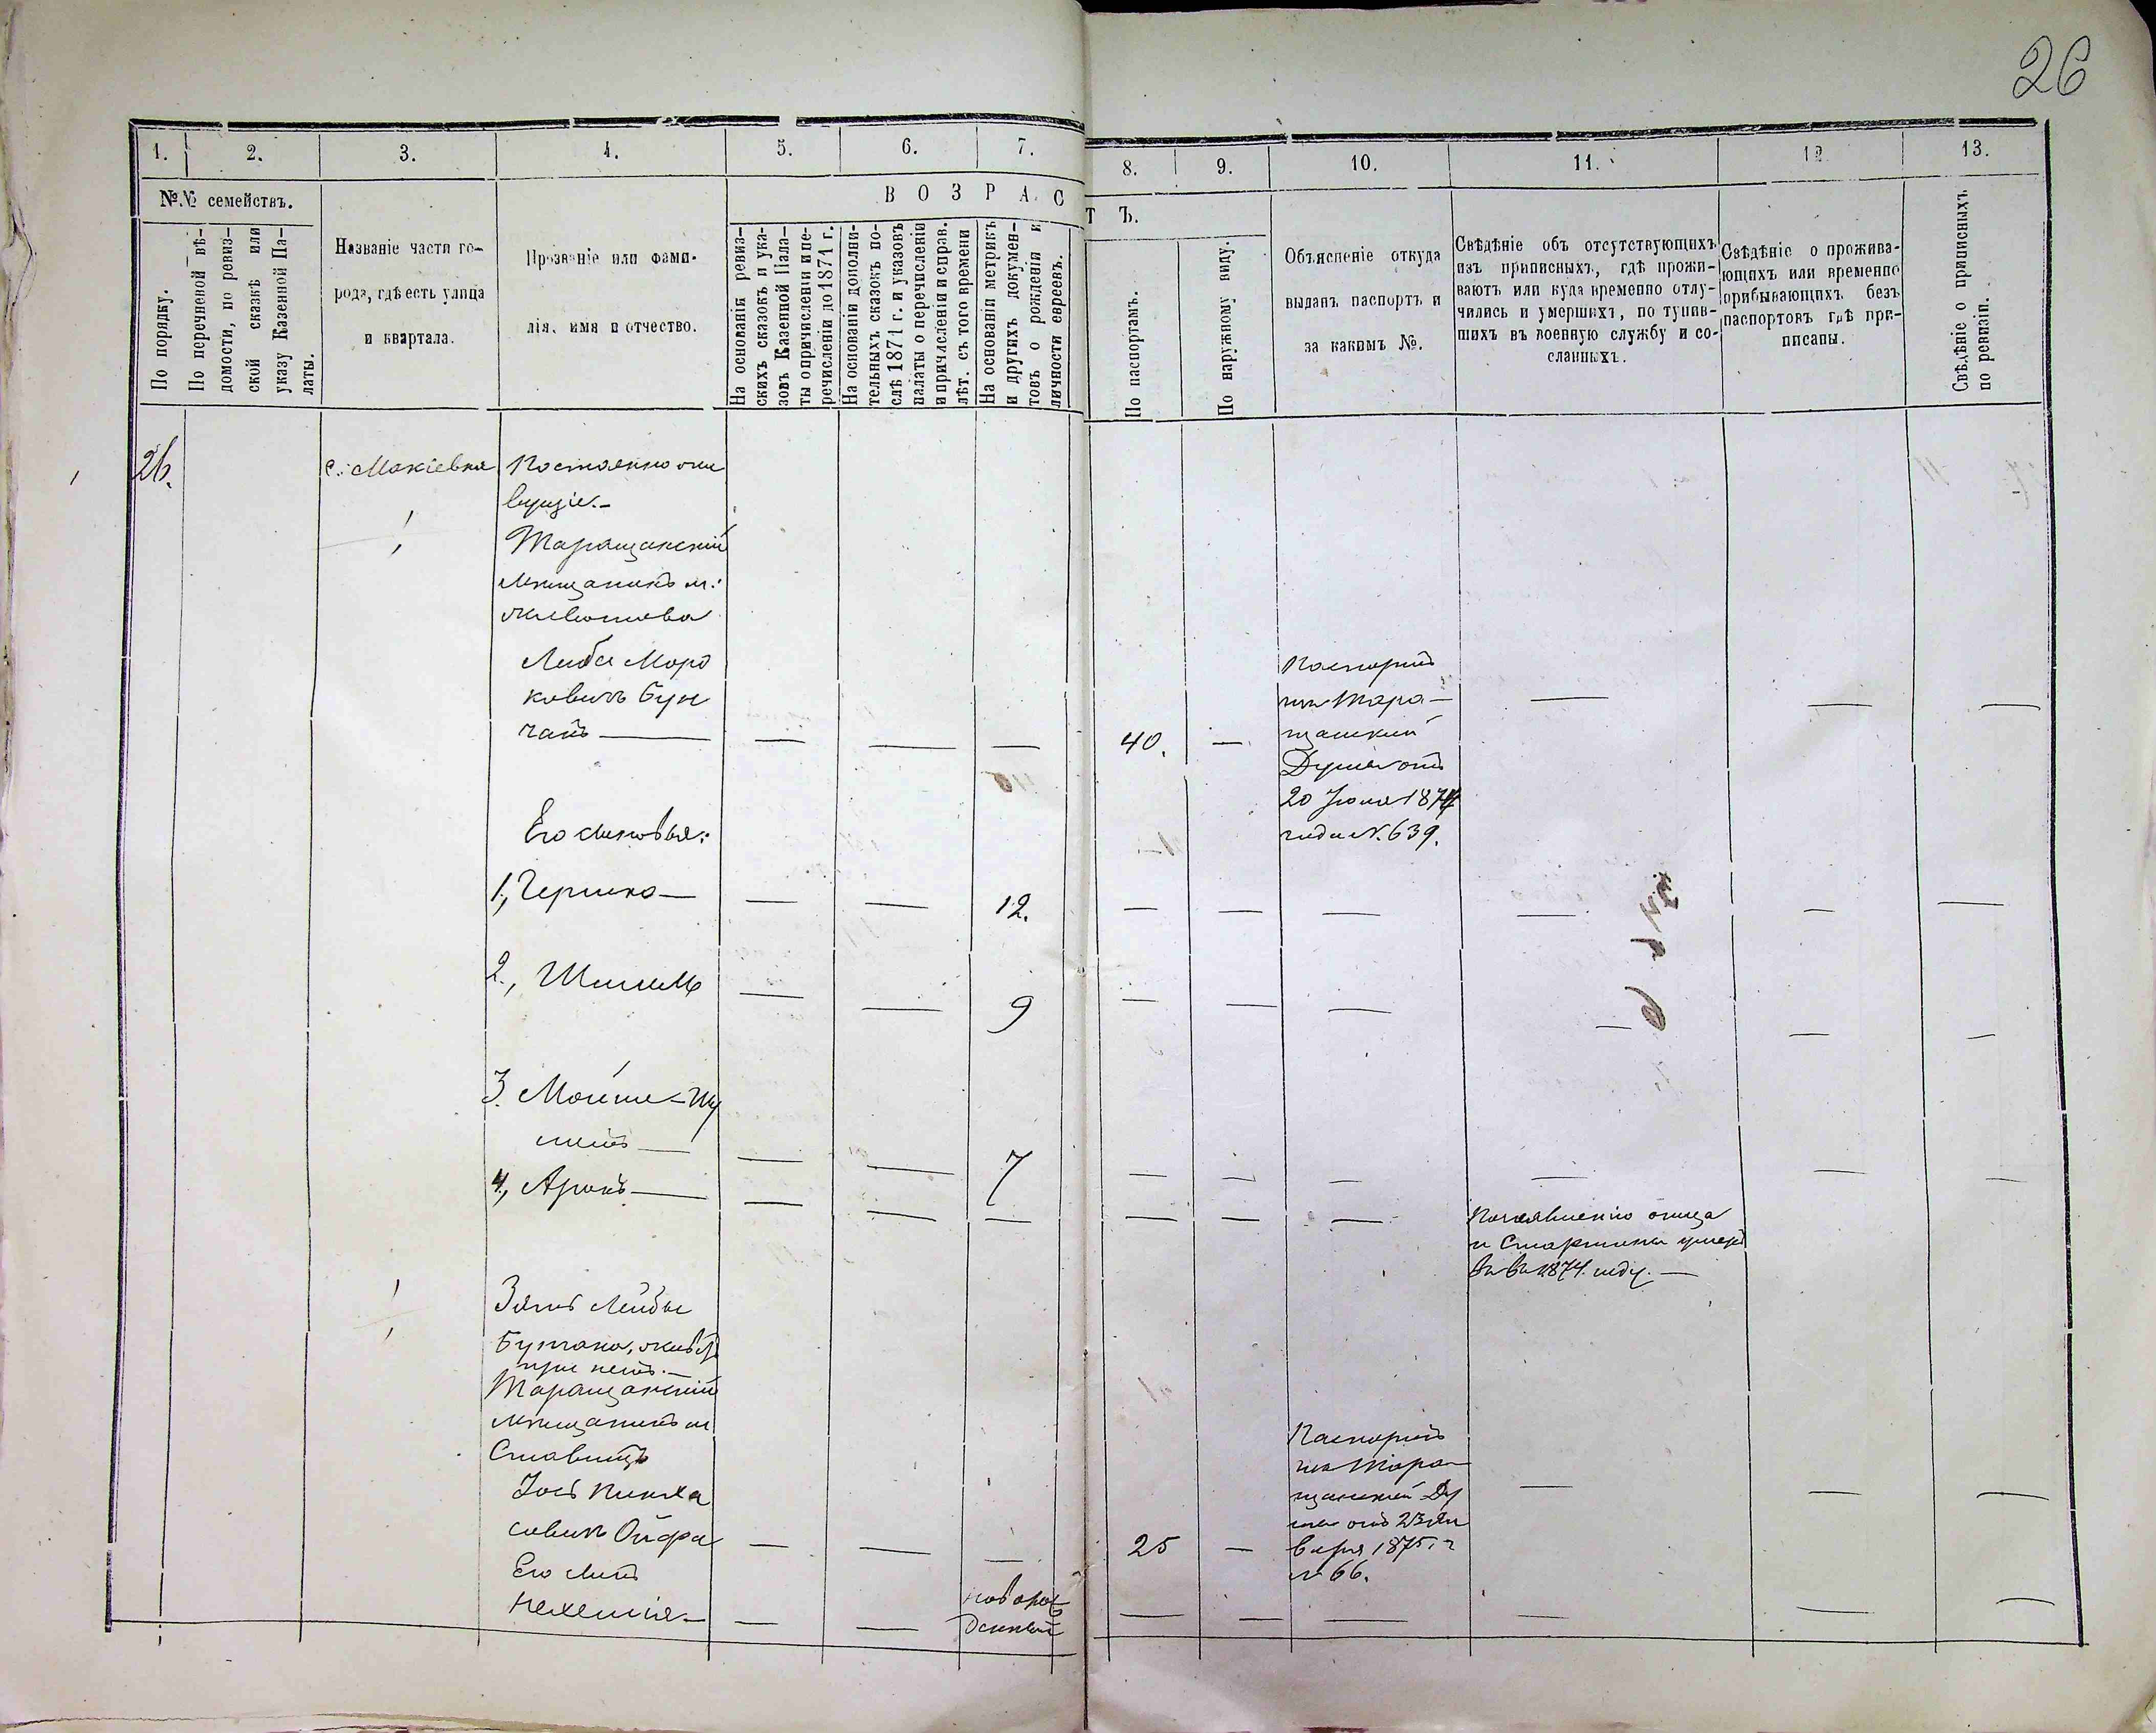 26
1. 2. 3. 4. 5. 6. 7. 8. 9. 10. 11. 12 13.
№№ семействъ.
ВОЗРАСТЪ.
По порядку.
По перечневой вѣ-
домости, по ревиз-
ской сказкѣ или
указу Казенной Па-
латы.
Названіе части го-
рода, гдѣ есть улица
и квартала.
Прозваніе или фами-
лія, имя и отчество.
На основаніи ревиз-
скихъ сказокъ и ука-
зовъ Казенной Пала-
ты о причисленіи и пе-
речисленіи до 1871 г.
На основаніи дополни-
тельныхъ сказокъ по-
слѣ 1871 г. и указовъ
палаты о перечисленіи
и причисленіи и справ.
лѣт. съ того времени
На основаніи метрикъ
и другихъ докумен-
товъ о рожденіи и
личности евреевъ.
По паспортамъ.
По наружному виду.
Объясненіе откуда
выданъ паспортъ и
за какимъ №.
Свѣдѣніе объ отсутствующихъ
изъ приписныхъ, гдѣ прожи-
ваютъ или куда временно отлу-
чились и умершихъ, по тупив-
шихъ въ военную службу и со-
сланныхъ.
Свѣдѣніе о прожива-
ющихъ или временно
прибывающихъ безъ
паспортовъ гдѣ при-
писаны.
Свѣдѣніе о приписныхъ
по ревизіи.
26.
с. Макіевка
Постоянно жи
вущіе.-
Таращанскій
мѣщанинъ м:
Животова
Лейба Мор
ковичъ Бун
чанъ — — — — 40. —
Паспортъ
изъ Тара-
щанской
Думы отъ
20 Іюня 1874
года N. 639.
Его сыновья:
1, Гершко — — — 12. — — — — — —
2, Шмиль — — 9 — — — — — —
3. Мойше-Шу
лимъ — — — 7 — — — — — —
4, Аронъ — — — — — — —
По заявленію отца
и Старшины умеръ
въ 1874. году. —
Зять Лейбы
Бунчана, живетъ
при немъ.—
Таращанскій
мѣщанинъ м.
Ставищъ
Іось Пинха
совичъ Ойфа — — — 25 —
Паспортъ
изъ Тара-
щанской Ду
мы отъ 23 Ян
варя 1875 г
N 66.
Его сынъ
Нехемія — — — новорож
денный — — — — — —